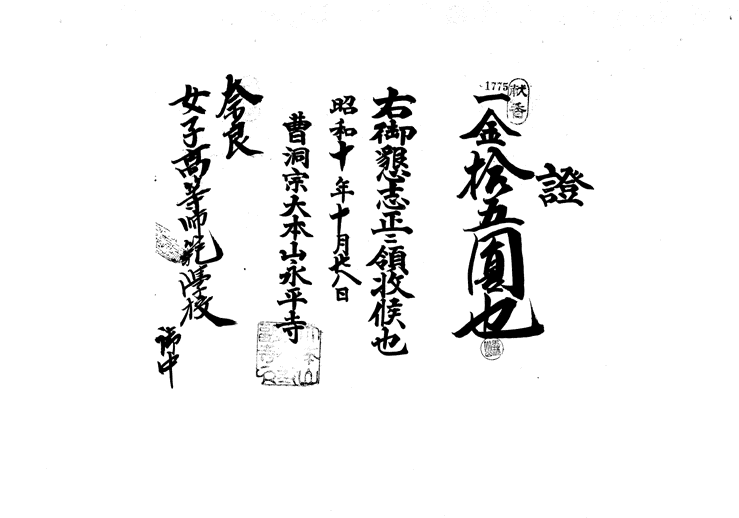 證
1775
献香
一金拾五圓也
右御懇志正ニ領收候也
昭和十年十月廿八日
曹洞宗大本山永平寺
奈良
女子高等師範學校
御中